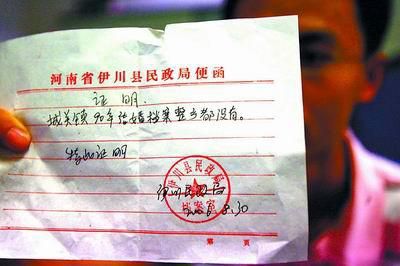 河南省伊川县民政局便函
证明
城关镇90年结婚档案整乡都没有。
特此证明
伊川县民政局
档案室
伊川民政局
8.30
第 页